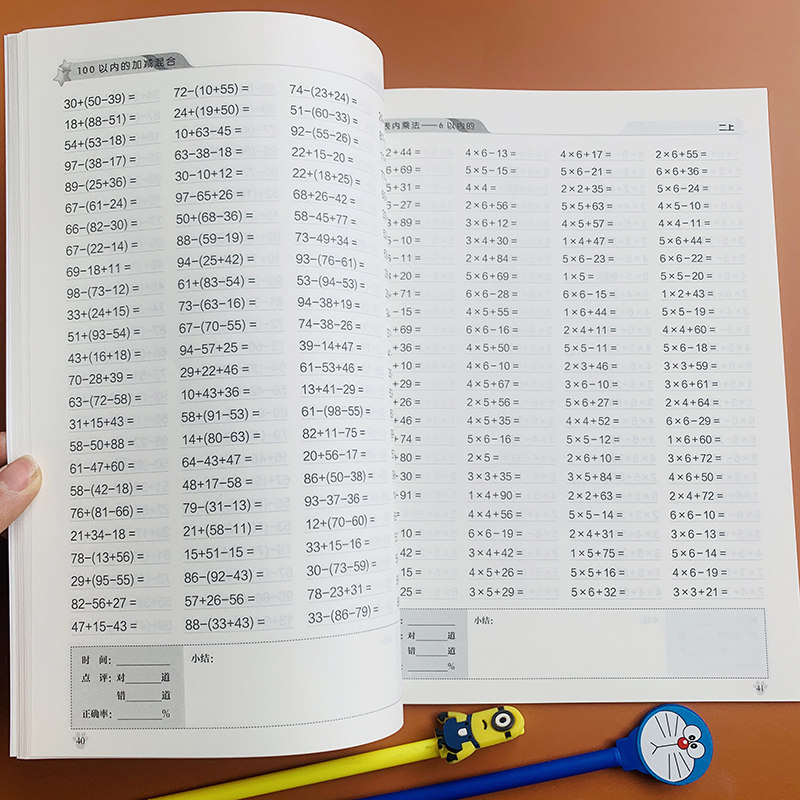 100 以内的加减混合
30+(50−39) = 72−(10+55) = 74−(23+24) =
18+(88−51) = 24+(19+50) = 51−(60−33) =
54+(53−18) = 10+63−45 = 92−(55−26) =
97−(38−17) = 63−38−18 = 22+15−20 =
89−(25+36) = 30−10+12 = 22+(18+25) =
67−(61−24) = 97−65+26 = 68+26−42 =
66−(82−30) = 50+(68−36) = 58−45+77 =
67−(22−14) = 88−(59−19) = 73−49+34 =
69−18+11 = 94−(25+42) = 93−(76−61) =
98−(73−12) = 61+(83−54) = 53−(94−53) =
33+(24+15) = 73−(63−16) = 94−38+19 =
51+(93−54) = 67−(70−55) = 74−38−26 =
43+(16+18) = 94−57+25 = 39−14+47 =
70−28+39 = 29+22+46 = 61−53+46 =
63−(72−58) = 10+43+36 = 13+41−29 =
31+15+43 = 58+(91−53) = 61−(98−55) =
58−50+88 = 14+(80−63) = 82+11−75 =
61−47+60 = 64−43+47 = 20+56−17 =
58−(42−18) = 48+17−58 = 86+(50−38) =
76+(81−66) = 79−(31−13) = 93−37−36 =
21+34−18 = 21+(58−11) = 12+(70−60) =
78−(13+56) = 15+51−15 = 33+15−16 =
29+(95−55) = 86−(92−43) = 30−(73−59) =
82−56+27 = 57+26−56 = 78−23+31 =
47+15−43 = 88−(33+43) = 33−(86−79) =
时 间：
点 评：对 道
错 道
正确率： %
小结：
40
表内乘法——6 以内的
二上
2+44 = 4×6−13 = 4×6+17 = 2×6+55 =
6+69 = 5×5−15 = 5×6−21 = 6×6+36 =
5+31 = 4×4 = 2×2+35 = 5×6−24 =
5−27 = 2×6+56 = 5×5+63 = 4×5−10 =
3+89 = 3×6+12 = 4×5+57 = 4×4−11 =
5−10 = 3×4+30 = 1×4+47 = 5×6+44 =
−11 = 2×4+84 = 5×6−23 = 6×6−22 =
4+20 = 5×6+69 = 1×5 = 5×5−20 =
+71 = 6×6−28 = 6×6−15 = 1×2+43 =
−15 = 4×5+55 = 1×6+44 = 5×5−19 =
+69 = 6×6−16 = 2×4+11 = 4×4+60 =
+36 = 4×5+50 = 5×5−11 = 5×6−18 =
−10 = 4×6−10 = 2×3+46 = 3×3+59 =
+29 = 4×5+67 = 3×6−10 = 3×6+61 =
+26 = 4×6+56 = 5×6+27 = 2×4+64 =
+46 = 4×5+35 = 4×4+52 = 6×6−29 =
+74 = 5×6−16 = 5×5−12 = 1×6+60 =
−80 = 2×5 = 2×6+10 = 3×6+72 =
−30 = 3×3+35 = 3×5+84 = 4×6+50 =
+91 = 1×4+90 = 2×2+63 = 2×4+72 =
4×4+56 = 5×5−14 = 6×6−10 =
10 = 6×6−19 = 2×4+31 = 3×6−13 =
42 = 3×4+42 = 1×5+75 = 5×6−14 =
15 = 4×5+26 = 5×5+16 = 4×6−19 =
25 = 4×5+29 = 5×6+32 = 3×3+21 =
对 道
错 道
%
小结：
41